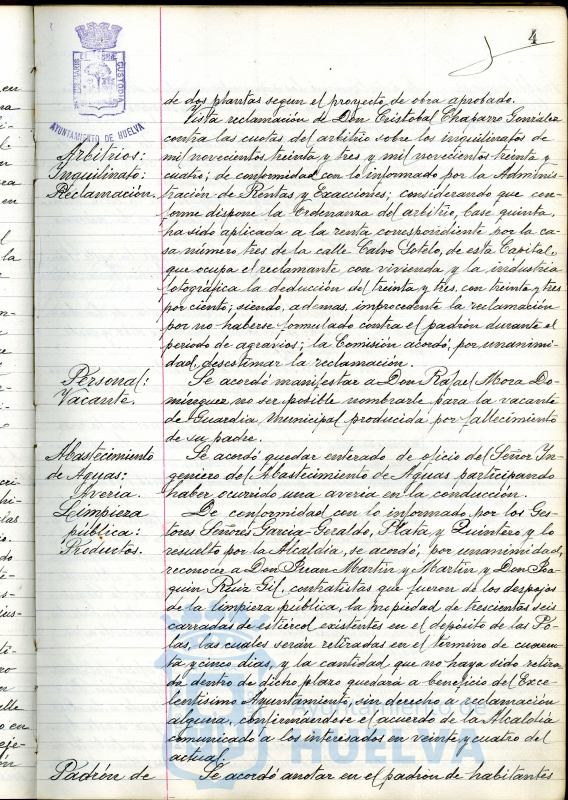 4
AYUNTAMIENTO DE HUELVA
de dos plantas segun el proyecto de obra aprobado.
Vista reclamación de Don Cristobal Chaparro Gonzalez
contra las cuotas del arbitrio sobre los inquilinatos de
Arbitrios:
mil novecientos treinta y tres y mil novecientos treinta y
Inquilinato:
cuatro; de conformidad con lo informado por la Adminis-
Reclamación.
tración de Rentas y Exacciones; considerando que con-
forme dispone la Ordenanza del arbitrio, base quinta,
ha sido aplicada a la renta correspondiente por la ca-
sa número tres de la calle Calvo Sotelo, de esta Capital,
que ocupa el reclamante con vivienda y la industria
fotográfica la deducción del treinta y tres, con treinta y tres
por ciento; siendo, ademas, improcedente la reclamación
por no haberse formulado contra el padrón durante el
periodo de agravios; la Comisión acordó, por unanimi-
dad, desestimar la reclamación.
Personal:
Se acordó manifestar a Don Rafael Mora Do-
Vacante.
minguez no ser posible nombrarle para la vacante
de Guardia Municipal producida por fallecimiento
de su padre.
Abastecimiento
Se acordó quedar enterado de oficio del Señor In-
de Aguas:
geniero del Abastecimiento de Aguas participando
Averia.
haber ocurrido una averia en la conducción.
Limpieza
De conformidad con lo informado por los Ges-
pública:
tores Señores Garcia-Geraldo, Plata y Quintero y lo
Productos.
resuelto por la Alcaldia, se acordó, por unanimidad,
reconocer a Don Juan Martin y Martin y Don Joa-
quin Ruiz Gil, contratistas que fueron de los despojos
de la limpieza pública, la propiedad de trescientas seis
carradas de estiércol existentes en el depósito de las Po-
las, las cuales serán retiradas en el término de cuaren-
ta y cinco dias, y la cantidad que no haya sido retira-
da dentro de dicho plazo quedará a beneficio del Exce-
lentisimo Ayuntamiento, sin derecho a reclamación
alguna, confirmandose el acuerdo de la Alcaldia
comunicado a los interesados en veinte y cuatro del
actual.
Padrón de
Se acordó anotar en el padrón de habitantes
Ayuntamiento de
HUELVA